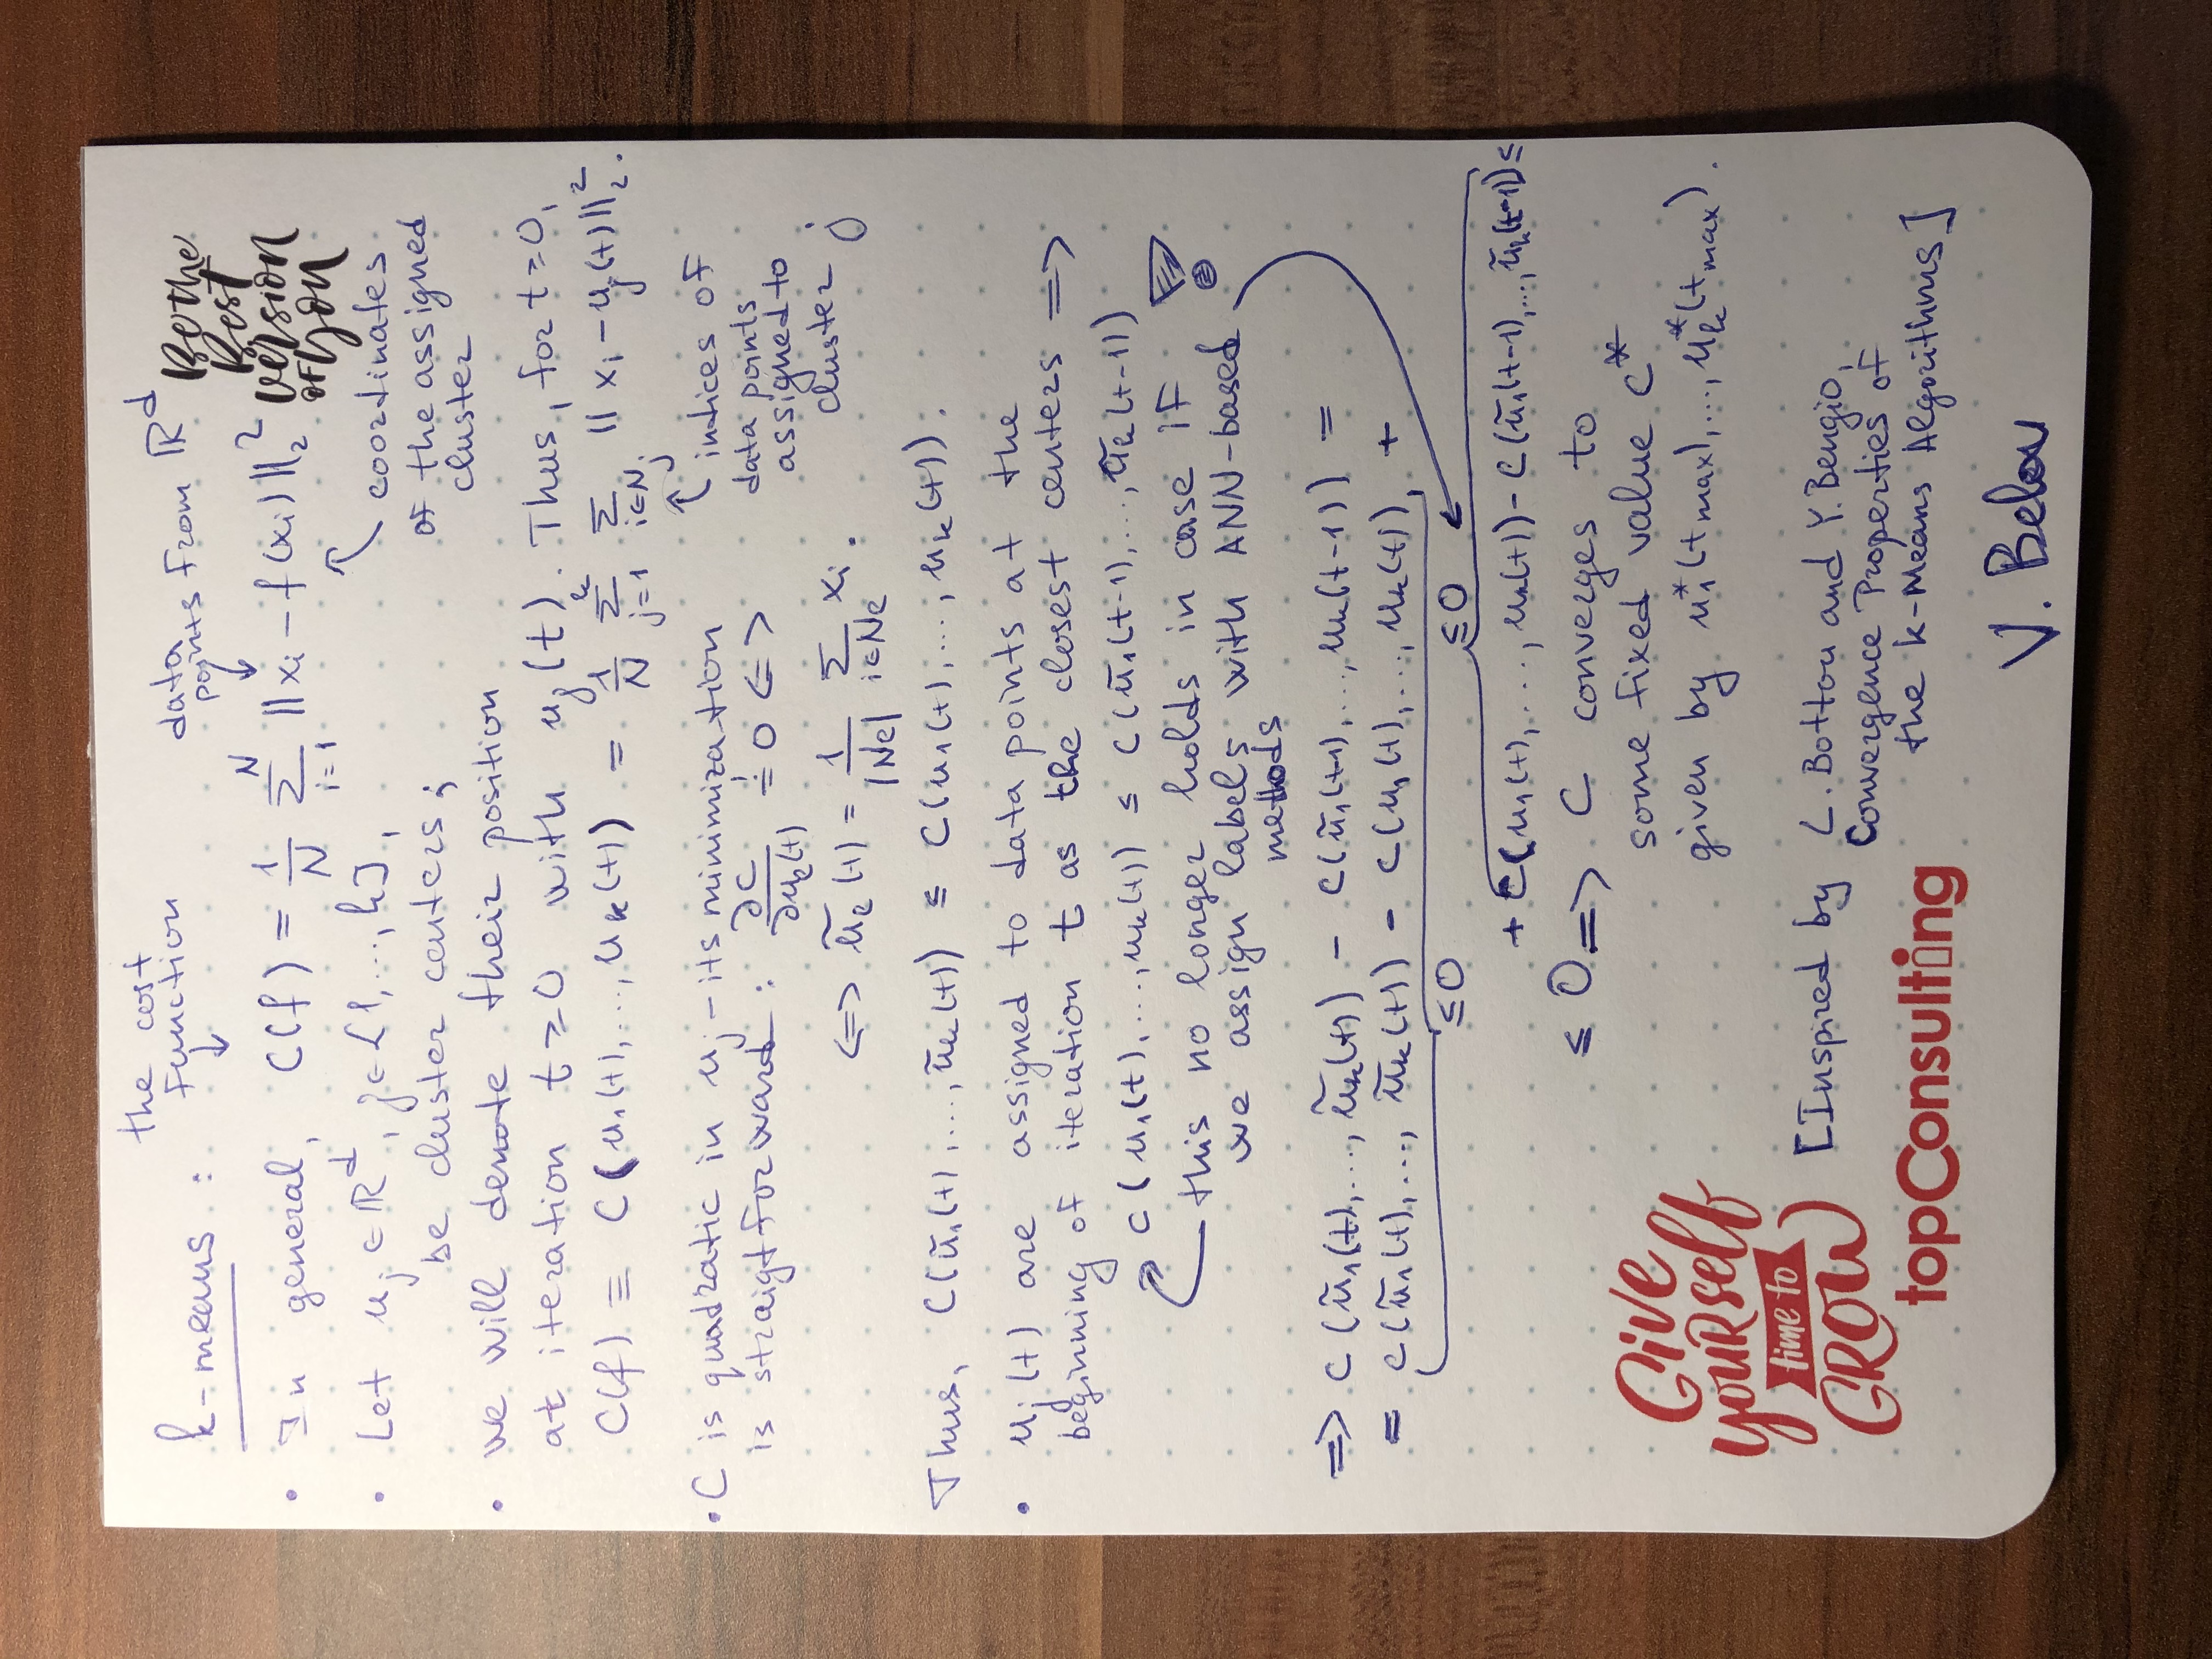 the cost
function
↓
data
points from ℝᵈ
↓
k-means :
Be the
Best
version
of you
• In general, C(f) = 1/N Σ_{i=1}^{N} ||xᵢ - f(xᵢ)||₂²
coordinates
of the assigned
cluster
• Let uⱼ ∈ ℝᵈ, j ∈ {1, ..., k},
be cluster centers;
• we will denote their position
at iteration t ≥ 0 with uⱼ(t). Thus, for t ≥ 0,
C(f) ≡ C(u₁(t), ..., uₖ(t)) = 1/N Σ_{j=1}^{k} Σ_{i∈Nⱼ} || xᵢ - uⱼ(t)||₂².
indices of
data points
assigned to
cluster j
• C is quadratic in uⱼ - its minimization
is straigtforward : ∂C/∂u_ℓ(t) =! 0 <=>
<=> ũ_ℓ(t) = 1/|N_ℓ| Σ_{i∈N_ℓ} xᵢ.
Thus, C(ũ₁(t), ..., ũₖ(t)) ≤ C(u₁(t), ..., uₖ(t)).
• uⱼ(t) are assigned to data points at the
beginning of iteration t as the closest centers =>
C(u₁(t), ..., uₖ(t)) ≤ C(ũ₁(t-1), ..., ũₖ(t-1))
this no longer holds in case if !
we assign labels with ANN-based
methods
=> C(ũ₁(t), ..., ũₖ(t)) - C(ũ₁(t-1), ..., uₖ(t-1)) =
= C(ũ₁(t), ..., ũₖ(t)) - C(u₁(t), ..., uₖ(t)) +
≤0 ≤0
+ C(u₁(t), ..., uₖ(t)) - C(ũ₁(t-1), ..., ũₖ(t-1)) ≤
≤ 0 => C converges to
some fixed value C*
given by u₁*(t_max), ..., uₖ*(t_max).
Give
yourself
time to
GROW
topConsulting
[Inspired by L. Bottou and Y. Bengio,
Convergence Properties of
the k-Means Algorithms]
V. Belov